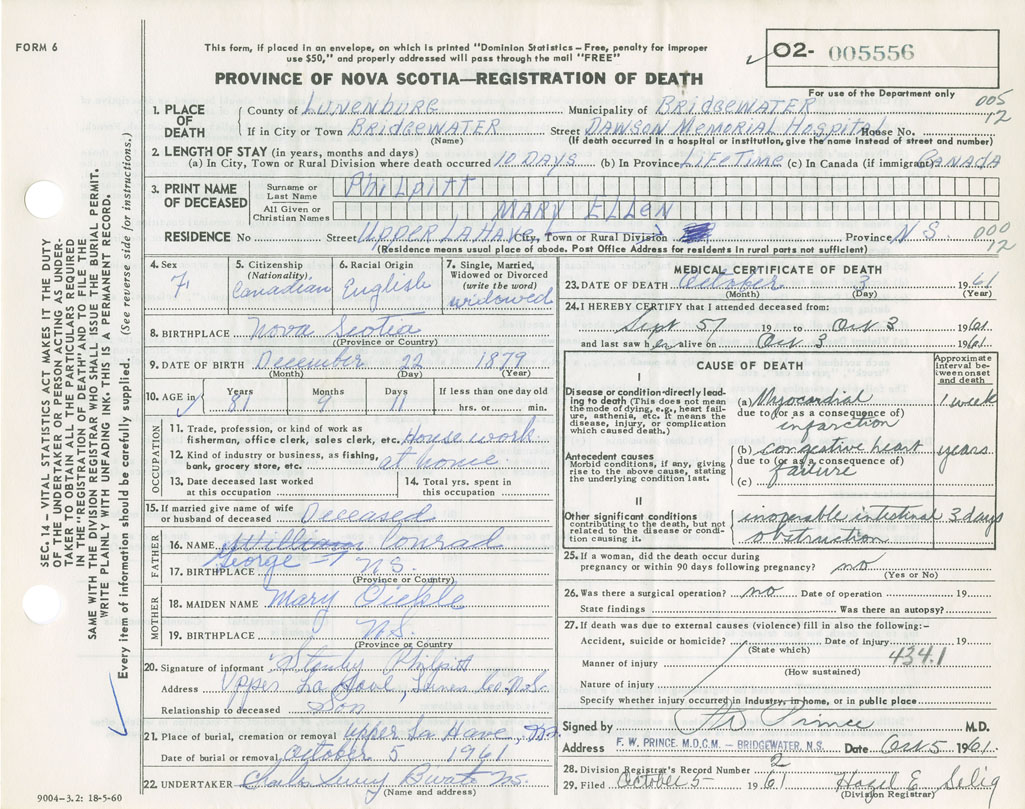 FORM 6
This form, if placed in an envelope, on which is printed "Dominion Statistics – Free, penalty for improper
use $50," and properly addressed will pass through the mail "FREE"
02- 005556
PROVINCE OF NOVA SCOTIA—REGISTRATION OF DEATH
For use of the Department only
1. PLACE OF DEATH County of Lunenburg Municipality of Bridgewater 005 12
If in City or Town Bridgewater Street Dawson Memorial Hospital House No.
(Name) (If death occurred in a hospital or institution, give the name instead of street and number)
2. LENGTH OF STAY (in years, months and days)
(a) In City, Town or Rural Division where death occurred 10 Days (b) In Province Lifetime (c) In Canada (if immigrant) Canada
3. PRINT NAME OF DECEASED Surname or Last Name Philpitt
All Given or Christian Names Mary Ellen
RESIDENCE No Street Upper LaHave City, Town or Rural Division Province N S. 000 12
(Residence means usual place of abode. Post Office Address for residents in rural parts not sufficient)
4. Sex F
5. Citizenship (Nationality) Canadian
6. Racial Origin English
7. Single, Married, Widowed or Divorced (write the word) widowed
8. BIRTHPLACE Nova Scotia
(Province or Country)
9. DATE OF BIRTH December 22 1879
(Month) (Day) (Year)
10. AGE in Years 81 Months 9 Days 11 If less than one day old hrs. or min.
OCCUPATION
11. Trade, profession, or kind of work as fisherman, office clerk, sales clerk, etc. House work
12. Kind of industry or business, as fishing, bank, grocery store, etc. at home
13. Date deceased last worked at this occupation
14. Total yrs. spent in this occupation
15. If married give name of wife or husband of deceased Deceased
FATHER
16. NAME William Conrad
George
17. BIRTHPLACE N.S.
(Province or Country)
MOTHER
18. MAIDEN NAME Mary
19. BIRTHPLACE N.S.
(Province or Country)
20. Signature of informant Philpitt
Address Upper La Have, Lunen Co. N.S.
Relationship to deceased Son
21. Place of burial, cremation or removal Upper La Have,
Date of burial or removal October 5 1961
22. UNDERTAKER
(Name and address)
9004-3.2: 18-5-60
MEDICAL CERTIFICATE OF DEATH
23. DATE OF DEATH October 3 1961
(Month) (Day) (Year)
24. I HEREBY CERTIFY that I attended deceased from:
Sept 57 19 to Oct 3 1961
and last saw her alive on Oct 3 1961
CAUSE OF DEATH
Approximate interval between onset and death
I
Disease or condition directly leading to death (This does not mean the mode of dying, e.g., heart failure, asthenia, etc. It means the disease, injury, or complication which caused death.)
(a) Myocardial 1 week
due to (or as a consequence of)
infarction
Antecedent causes
Morbid conditions, if any, giving rise to the above cause, stating the underlying condition last.
(b) congestive heart years
due to (or as a consequence of)
failure
(c)
II
Other significant conditions contributing to the death, but not related to the disease or condition causing it.
inoperable intestinal 3 days
obstruction
25. If a woman, did the death occur during
pregnancy or within 90 days following pregnancy? no
(Yes or No)
26. Was there a surgical operation? no Date of operation 19
State findings Was there an autopsy?
27. If death was due to external causes (violence) fill in also the following:-
Accident, suicide or homicide? Date of injury 19
(State which)
434.1
Manner of injury
(How sustained)
Nature of injury
Specify whether injury occurred in industry, in home, or in public place
Signed by Prince M.D.
Address F. W. PRINCE, M.D.C.M. – BRIDGEWATER, N.S. Date Oct 5 1961
28. Division Registrar's Record Number 2
29. Filed October 5 1961 Hazel E. Selig
(Division Registrar)
SEC. 14 – VITAL STATISTICS ACT MAKES IT THE DUTY
OF THE UNDERTAKER OR PERSON ACTING AS UNDER-
TAKER TO OBTAIN ALL THE PARTICULARS REQUIRED
IN THE "REGISTRATION OF DEATH" AND TO FILE THE
SAME WITH THE DIVISION REGISTRAR WHO SHALL ISSUE THE BURIAL PERMIT.
WRITE PLAINLY WITH UNFADING INK. THIS IS A PERMANENT RECORD.
Every item of information should be carefully supplied. (See reverse side for instructions.)